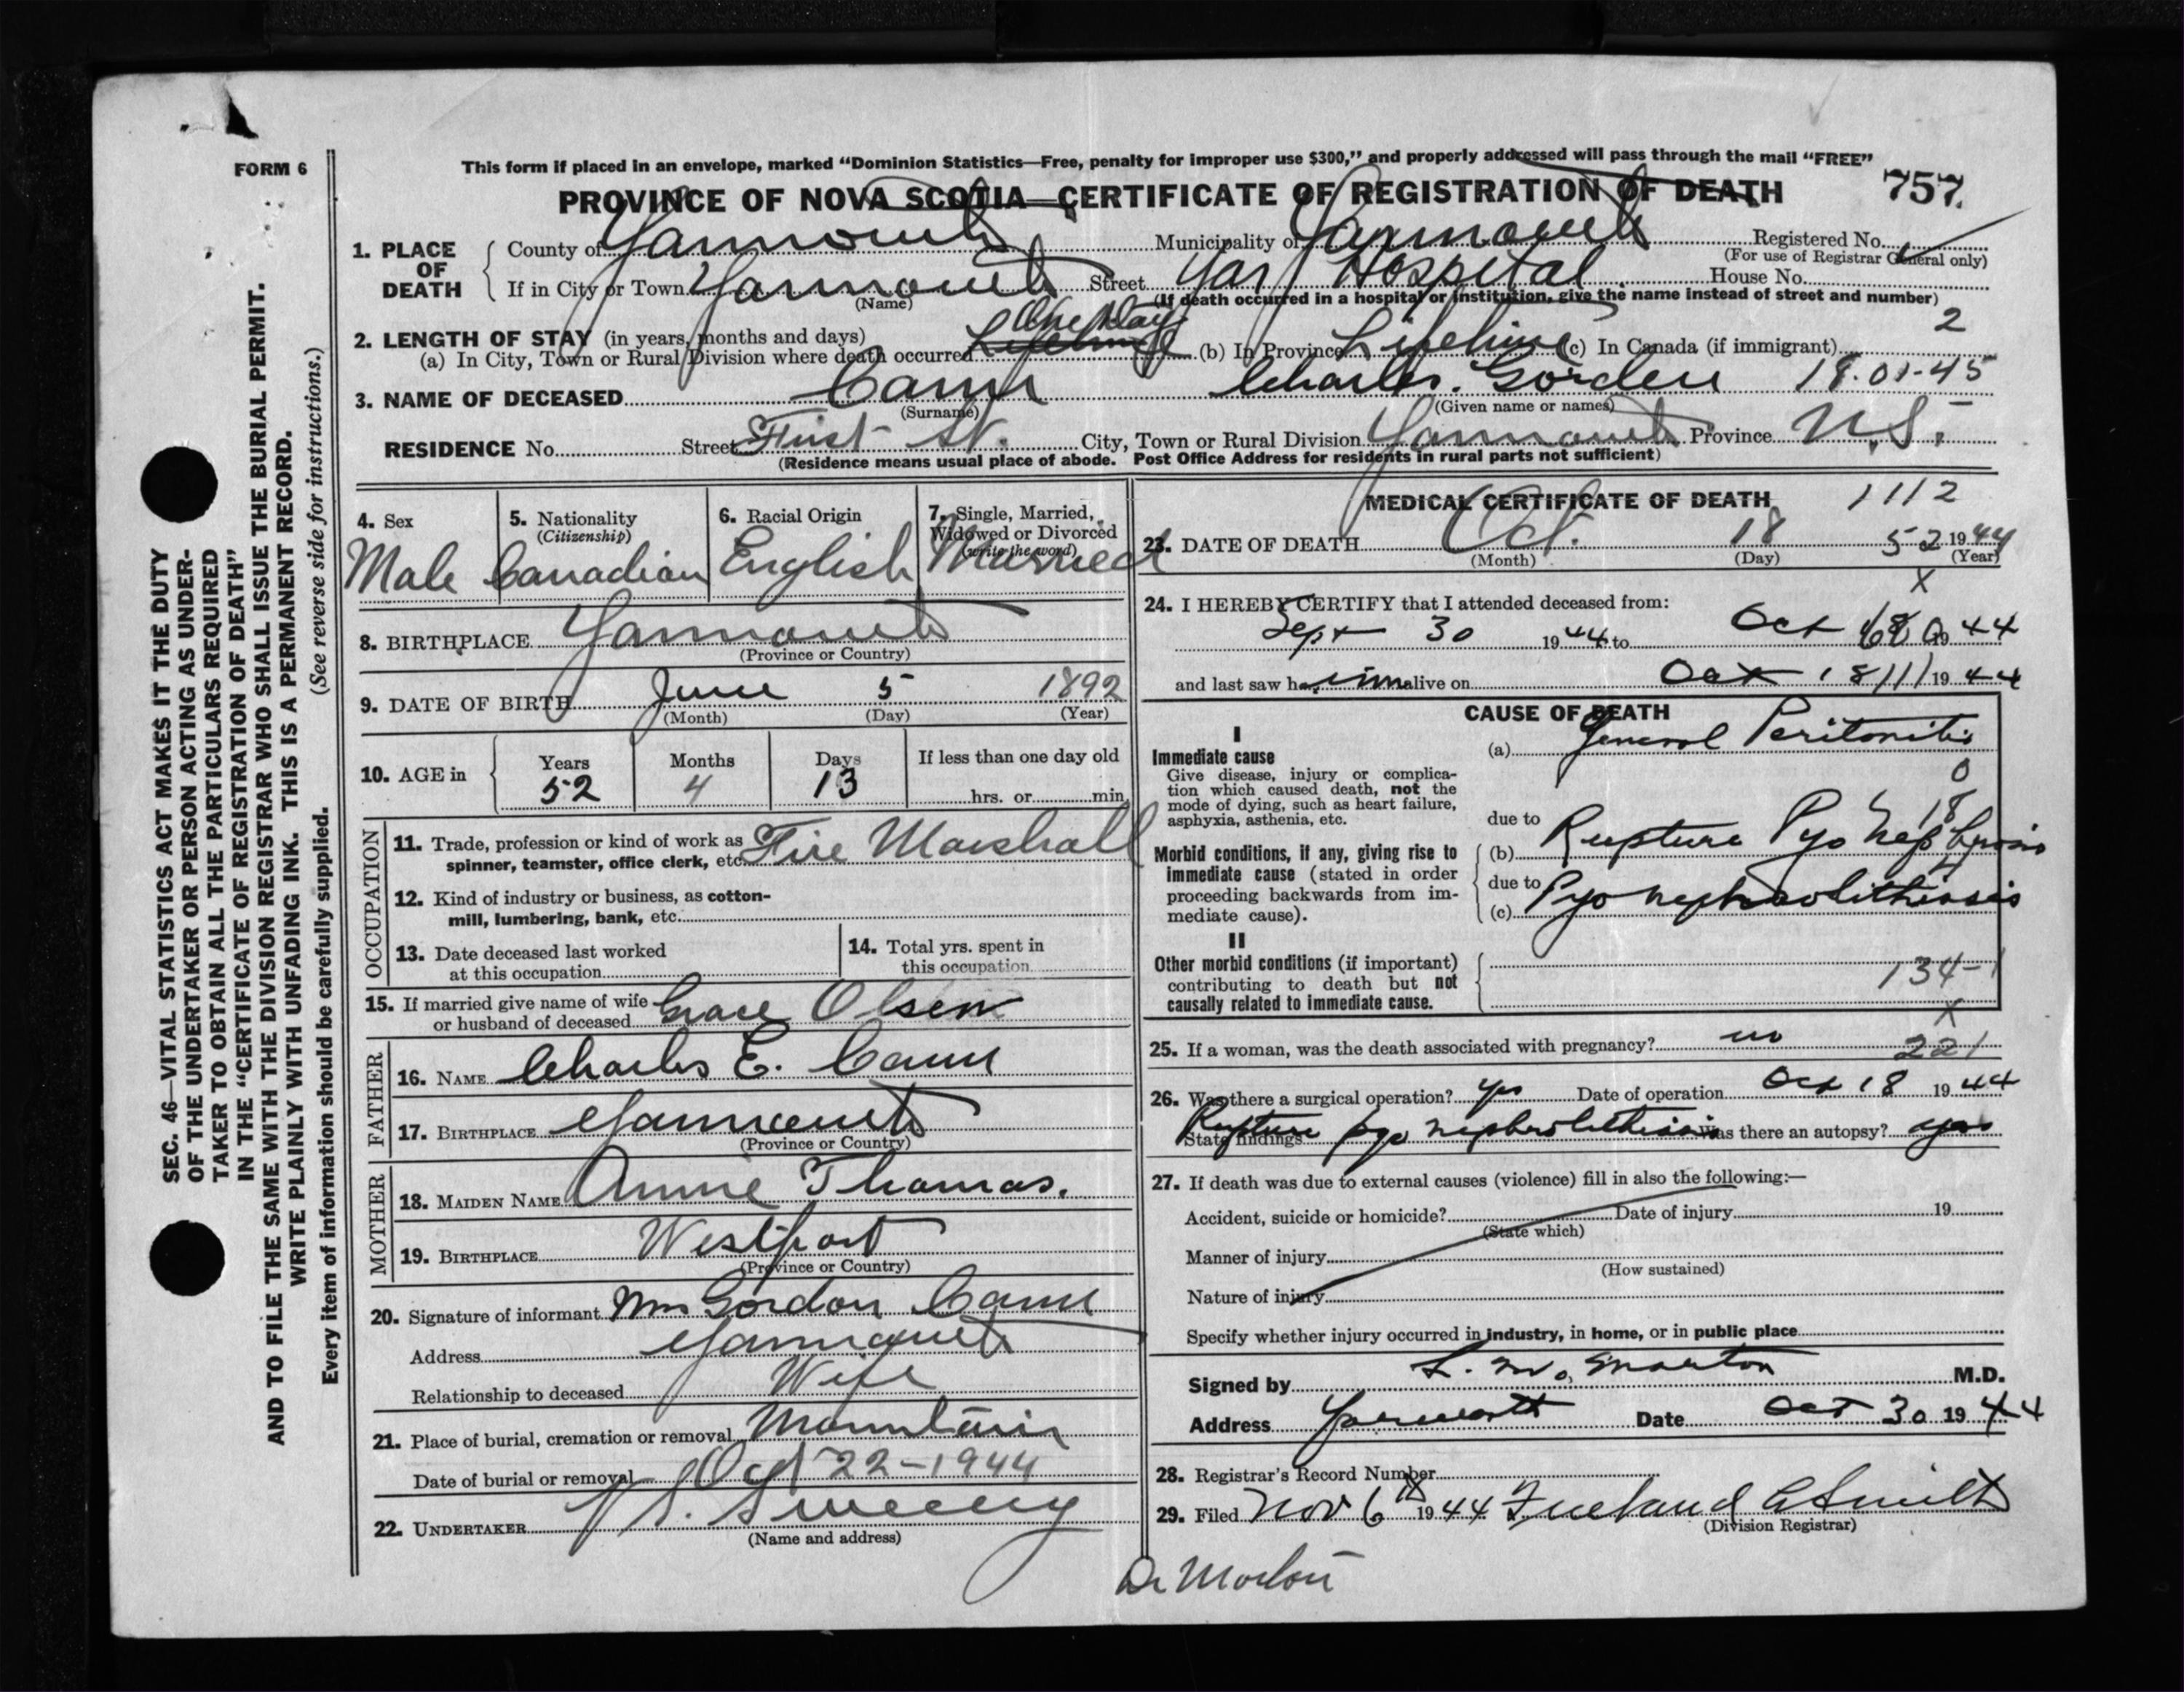 FORM 6
This form if placed in an envelope, marked “Dominion Statistics—Free, penalty for improper use $300,” and properly addressed will pass through the mail “FREE”
PROVINCE OF NOVA SCOTIA—CERTIFICATE OF REGISTRATION OF DEATH 757
1. PLACE OF DEATH
County of Yarmouth Municipality of Yarmouth Registered No.
(For use of Registrar General only)
If in City or Town Yarmouth Street Yar Hospital House No.
(Name) (If death occurred in a hospital or institution, give the name instead of street and number)
2. LENGTH OF STAY (in years, months and days) One Day 2
(a) In City, Town or Rural Division where death occurred Lifetime (b) In Province Lifetime (c) In Canada (if immigrant)
3. NAME OF DECEASED Cann Charles. Gorden 18-01-45
(Surname) (Given name or names)
RESIDENCE No. Street First St. City, Town or Rural Division Yarmouth Province N.S.
(Residence means usual place of abode. Post Office Address for residents in rural parts not sufficient)
4. Sex Male
5. Nationality (Citizenship) Canadian
6. Racial Origin English
7. Single, Married, Widowed or Divorced (write the word) Married
8. BIRTHPLACE Yarmouth
(Province or Country)
9. DATE OF BIRTH June 5 1892
(Month) (Day) (Year)
10. AGE in Years 52 Months 4 Days 13 If less than one day old
hrs. or min.
OCCUPATION
11. Trade, profession or kind of work as Fire Marshall
spinner, teamster, office clerk, etc.
12. Kind of industry or business, as cotton-
mill, lumbering, bank, etc.
13. Date deceased last worked
at this occupation
14. Total yrs. spent in
this occupation
15. If married give name of wife
or husband of deceased Grace Olsen
FATHER
16. NAME Charles E. Cann
17. BIRTHPLACE Yarmouth
(Province or Country)
MOTHER
18. MAIDEN NAME Annie Thomas.
19. BIRTHPLACE Westport
(Province or Country)
20. Signature of informant Mrs Gordon Cann
Address Yarmouth
Relationship to deceased Wife
21. Place of burial, cremation or removal Mountain
Date of burial or removal Oct 22-1944
22. UNDERTAKER V S. Sweeny
(Name and address)
MEDICAL CERTIFICATE OF DEATH 1112
23. DATE OF DEATH Oct. 18 52 1944
(Month) (Day) (Year)
X
24. I HEREBY CERTIFY that I attended deceased from:
Sept 30 1944 to Oct 19 44
and last saw him alive on Oct 18 19 44
CAUSE OF DEATH
I
Immediate cause
Give disease, injury or complica-
tion which caused death, not the
mode of dying, such as heart failure,
asphyxia, asthenia, etc.
(a) General Peritonitis
0
18
Morbid conditions, if any, giving rise to
immediate cause (stated in order
proceeding backwards from im-
mediate cause).
due to
(b) Rupture Pyo Nephrosis
due to
(c) Pyo nephrolithiasis
II
Other morbid conditions (if important)
contributing to death but not
causally related to immediate cause.
134-1
X
25. If a woman, was the death associated with pregnancy? no 221
26. Was there a surgical operation? yes Date of operation Oct 18 19 44
State findings Rupture pyo nephrolithiasis Was there an autopsy? yes
27. If death was due to external causes (violence) fill in also the following:—
Accident, suicide or homicide? Date of injury 19
(State which)
Manner of injury
(How sustained)
Nature of injury
Specify whether injury occurred in industry, in home, or in public place
Signed by L. M. Morton M.D.
Address Yarmouth Date Oct 30 19 44
28. Registrar's Record Number
29. Filed Nov 6th 1944 Freeland A Smith
(Division Registrar)
Dr Morton
SEC. 46—VITAL STATISTICS ACT MAKES IT THE DUTY
OF THE UNDERTAKER OR PERSON ACTING AS UNDER-
TAKER TO OBTAIN ALL THE PARTICULARS REQUIRED
IN THE “CERTIFICATE OF REGISTRATION OF DEATH”
AND TO FILE THE SAME WITH THE DIVISION REGISTRAR WHO SHALL ISSUE THE BURIAL PERMIT.
WRITE PLAINLY WITH UNFADING INK. THIS IS A PERMANENT RECORD.
(See reverse side for instructions.)
Every item of information should be carefully supplied.